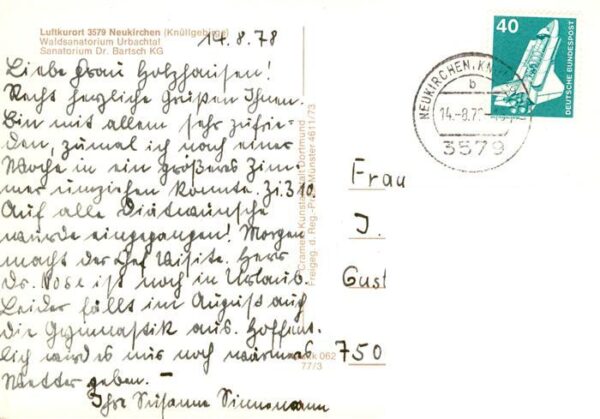 Luftkurort 3579 Neukirchen (Knüllgebirge)
Waldsanatorium Urbachtal
Sanatorium Dr. Bartsch KG
14.8.78
Liebe Frau Holzhausen!
Recht herzliche Grüße Ihnen.
Bin mit allem sehr zufrie-
den, zumal ich noch einer
Woche in ein größeres Zim-
mer umziehen konnte. Zi. 310.
Auf alle Diätwünsche
wurde eingegangen! Morgen
macht der Chef Visite. Herr
Dr. Nose ist noch in Urlaub.
Leider fällt im August auch
die Gymnastik aus. Hoffent-
lich wird es nur noch wärmeres
Wetter geben. –
Ihre Susanne Sinnemann
Cramers Kunstanstalt Dortmund
Freigeg. d. Reg.-Präs. Münster 4611/73
062
77/3
40
DEUTSCHE BUNDESPOST
NEUKIRCHEN, KN
b
14.-8.78
3579
Frau
J.
Gust
750